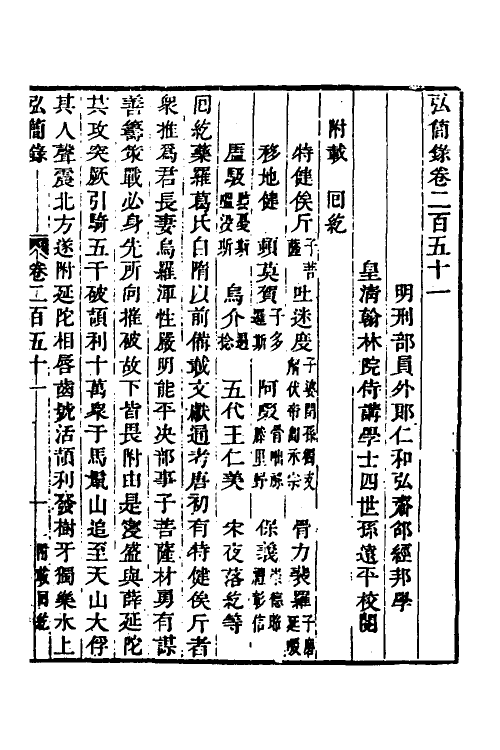 弘簡錄卷二百五十一
明刑部員外郎仁和弘齋邵經邦學
皇清翰林院侍講學士四世孫遠平校閱
附載 回紇
特健俟斤子菩薩 吐迷度子婆閏孫獨支解伏帝匐承宗 骨力裴羅子磨延啜
移地健 頓莫賀子多邏斯 阿啜骨咄祿滕里野 保義崇德昭禮彰信
㕎馺㕎曼斯㕎没斯 烏介遏捻 五代王仁美 宋夜落紇等
回紇藥羅葛氏自隋以前備載文獻通考唐初有特健俟斤者
衆推爲君長妻烏羅渾性嚴明能平决部事子菩薩材勇有謀
善籌策戰必身先所向摧破故下皆畏附由是寖盛與薛延陀
共攻突厥引騎五千破頡利十萬衆于馬鬛山追至天山大俘
其人聲震北方遂附延陀相唇齒號活頡利發樹牙獨樂水上
弘簡錄 卷二百五十一 一 附載回紇